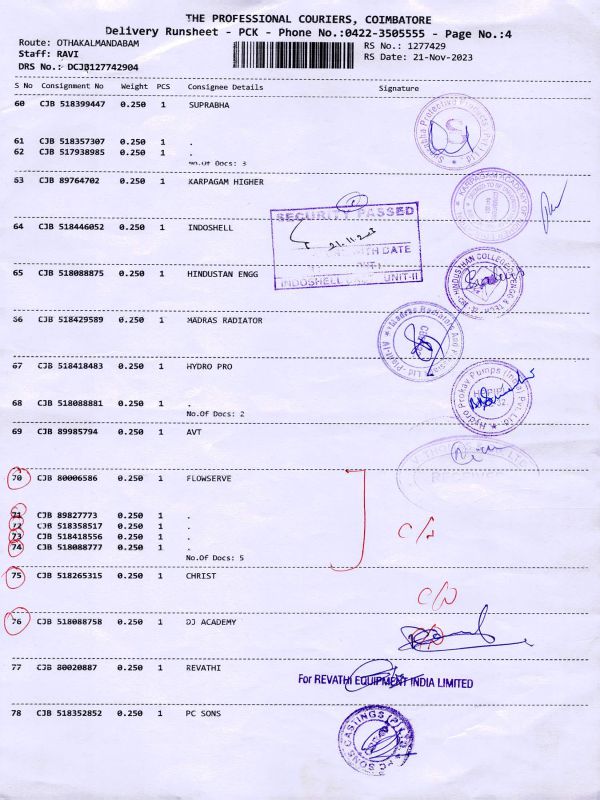 THE PROFESSIONAL COURIERS, COIMBATORE
Delivery Runsheet - PCK - Phone No.:0422-3505555 - Page No.:4
Route: OTHAKALMANDABAM
RS No.: 1277429
Staff: RAVI
RS Date: 21-Nov-2023
DRS No.: DCJB127742904
S No CJB Consignment No Weight PCS Consignee Details Signature
60 CJB 518399447 0.250 1 SUPRABHA
61 CJB 518357307 0.250 1 .
62 CJB 517938985 0.250 1 .
No.Of Docs: 3
63 CJB 89764702 0.250 1 KARPAGAM HIGHER
SECURITY PASSED
64 CJB 518446052 0.250 1 INDOSHELL
21.11.23
WITH DATE
INDOSHELL UNIT-II
65 CJB 518088875 0.250 1 HINDUSTAN ENGG
HINDUSTHAN COLLEGE
66 CJB 518429589 0.250 1 MADRAS RADIATOR
67 CJB 518418483 0.250 1 HYDRO PRO
Hydro Prokav Pumps (India) Pvt. Ltd
68 CJB 518088881 0.250 1 .
No.Of Docs: 2
69 CJB 89985794 0.250 1 AVT
70 CJB 80006586 0.250 1 FLOWSERVE
71 CJB 89827773 0.250 1 .
72 CJB 518358517 0.250 1 .
73 CJB 518418556 0.250 1 .
74 CJB 518088777 0.250 1 .
No.Of Docs: 5
75 CJB 518265315 0.250 1 CHRIST
76 CJB 518088758 0.250 1 DJ ACADEMY
77 CJB 80020887 0.250 1 REVATHI
For REVATHI EQUIPMENT INDIA LIMITED
78 CJB 518352852 0.250 1 PC SONS
PC SONS CASTINGS (P) LTD